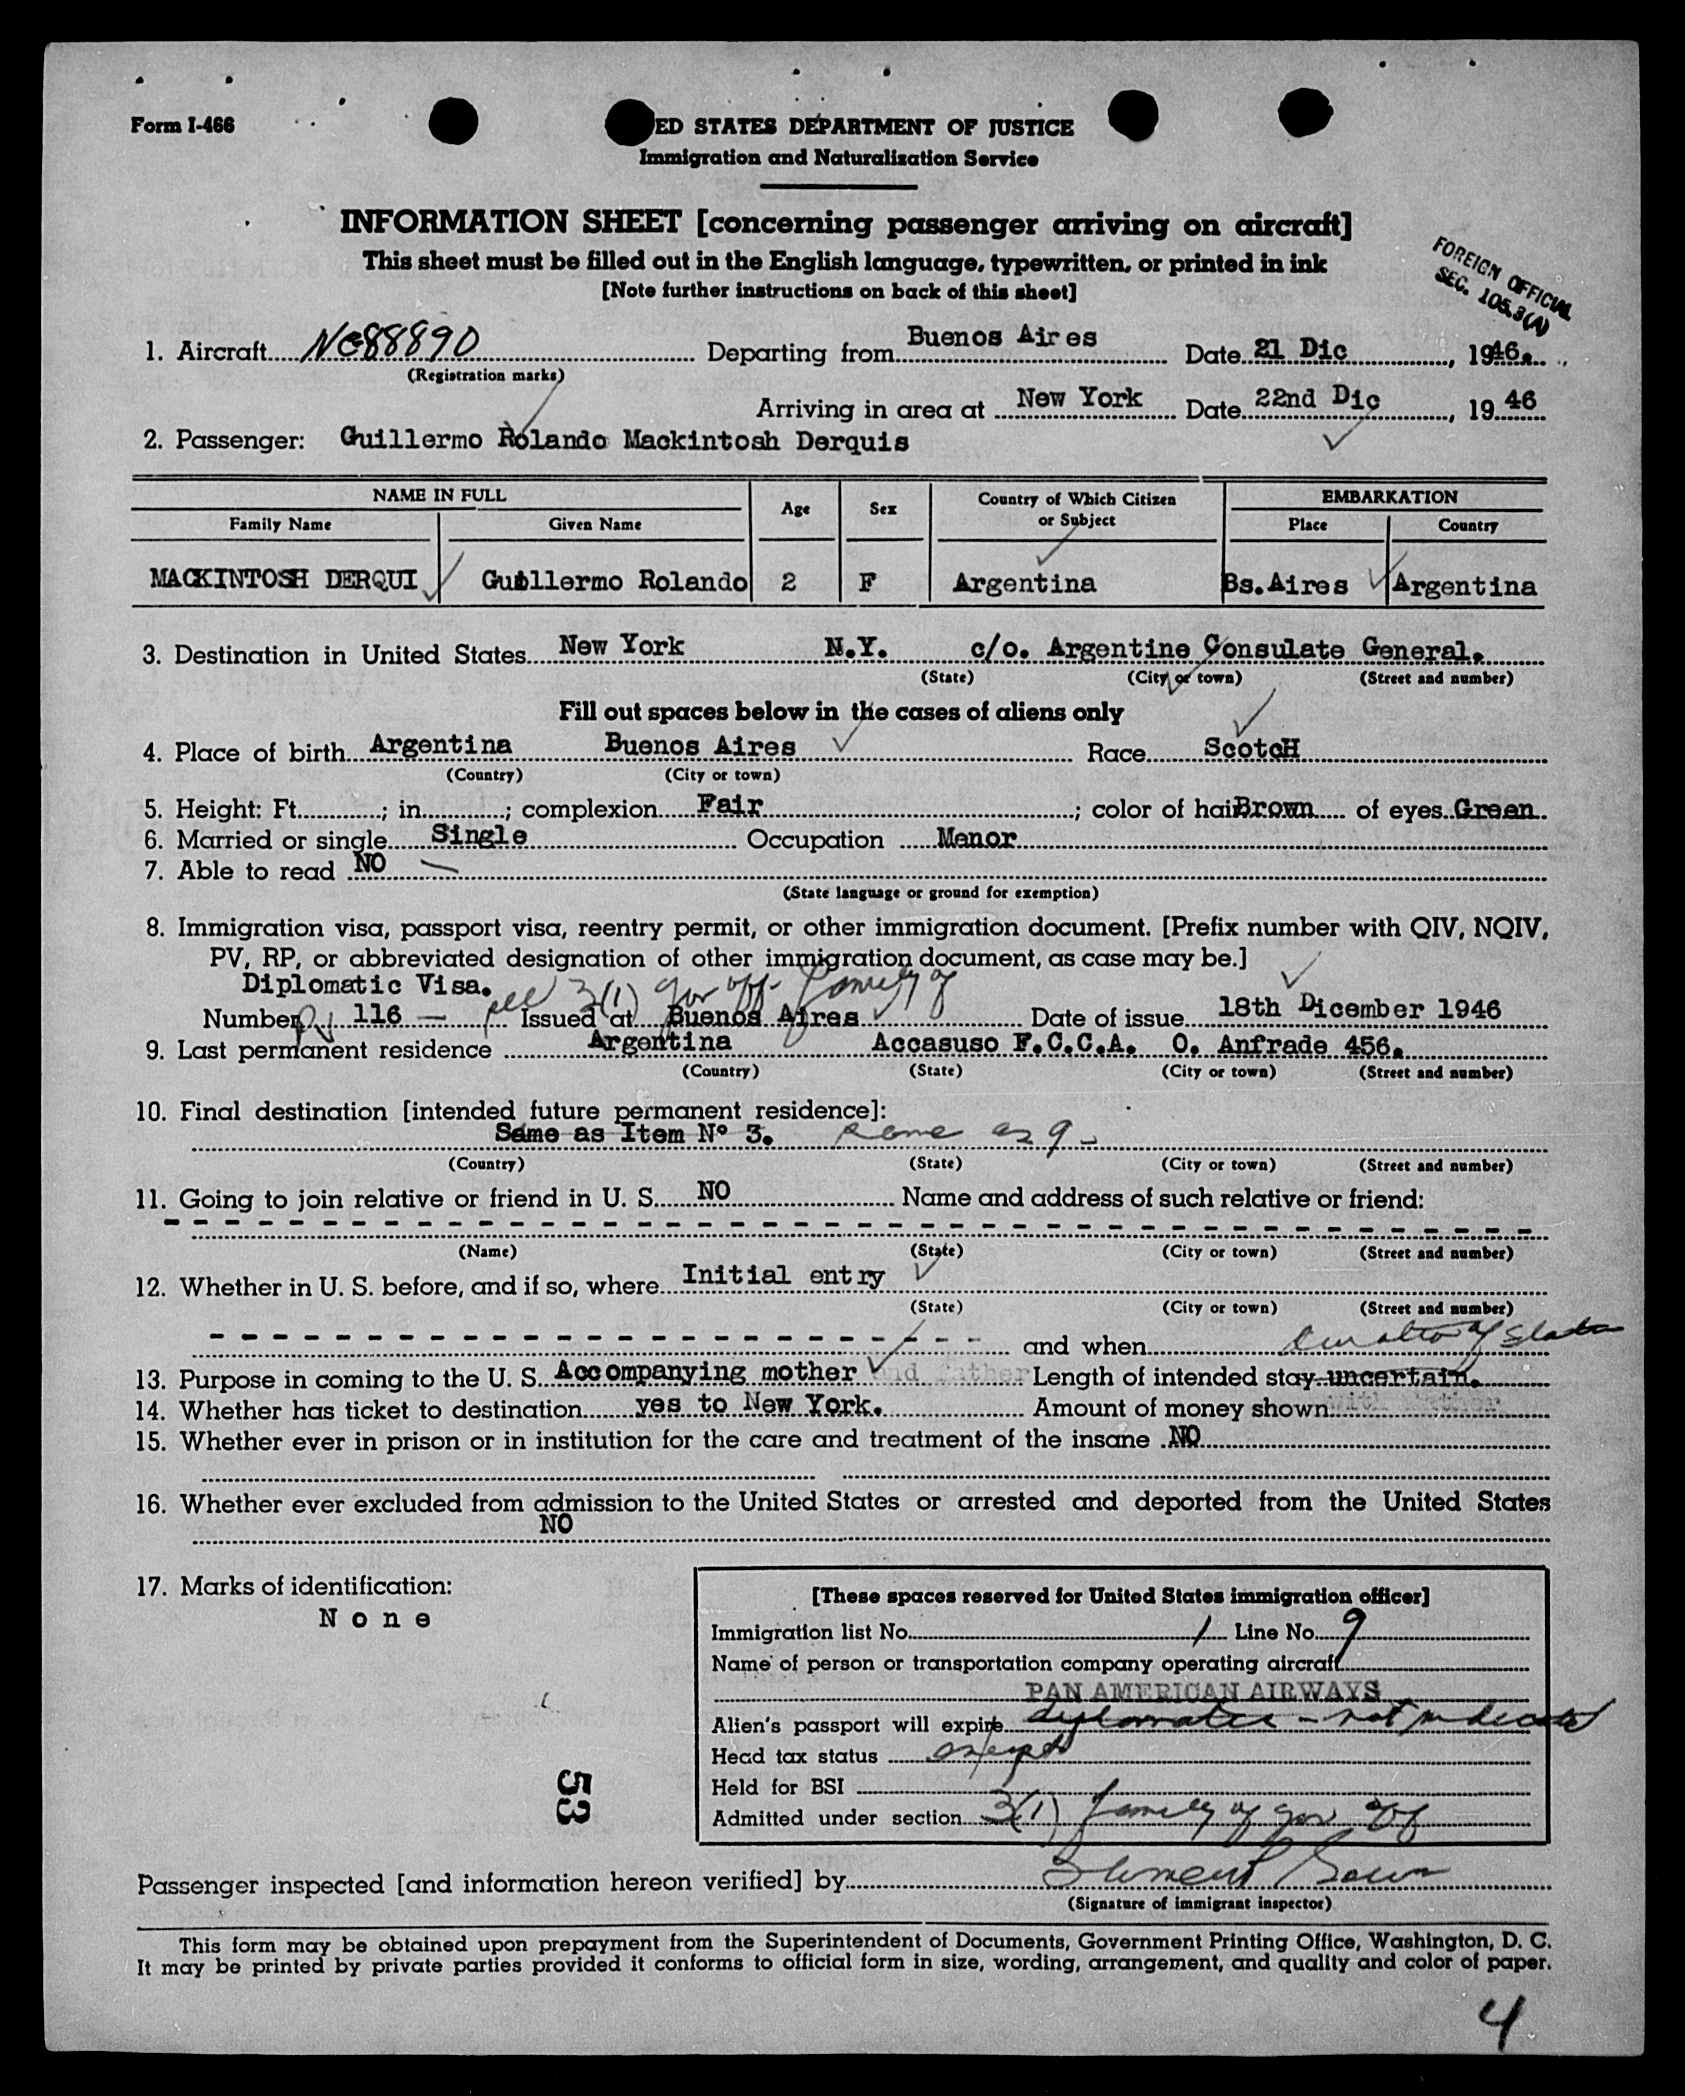 Form I-466
ED STATES DEPARTMENT OF JUSTICE
Immigration and Naturalization Service
INFORMATION SHEET [concerning passenger arriving on aircraft]
This sheet must be filled out in the English language, typewritten, or printed in ink
[Note further instructions on back of this sheet]
FOREIGN OFFICIAL
SEC. 105.3(A)
1. Aircraft NC88890 Departing from Buenos Aires Date 21 Dic, 1946.
(Registration marks)
Arriving in area at New York Date 22nd Dic, 19 46
2. Passenger: Guillermo Rolando Mackintosh Derquis
NAME IN FULL Age Sex Country of Which Citizen or Subject EMBARKATION
Family Name Given Name Place Country
MACKINTOSH DERQUI Guillermo Rolando 2 F Argentina Bs.Aires Argentina
3. Destination in United States New York N.Y. c/o. Argentine Consulate General.
(State) (City or town) (Street and number)
Fill out spaces below in the cases of aliens only
4. Place of birth Argentina Buenos Aires Race ScotcH
(Country) (City or town)
5. Height: Ft. ; in. ; complexion Fair ; color of hair Brown of eyes Green
6. Married or single Single Occupation Menor
7. Able to read NO —
(State language or ground for exemption)
8. Immigration visa, passport visa, reentry permit, or other immigration document. [Prefix number with QIV, NQIV,
PV, RP, or abbreviated designation of other immigration document, as case may be.]
Diplomatic Visa. 3(1) gov off. family of
Number PV 116 — Issued at Buenos Aires Date of issue 18th Dicember 1946
9. Last permanent residence Argentina Accasuso F.C.C.A. O. Anfrade 456.
(Country) (State) (City or town) (Street and number)
10. Final destination [intended future permanent residence]:
Same as Item Nº 3. same as 9 -
(Country) (State) (City or town) (Street and number)
11. Going to join relative or friend in U. S. NO Name and address of such relative or friend:
(Name) (State) (City or town) (Street and number)
12. Whether in U. S. before, and if so, where Initial entry
(State) (City or town) (Street and number)
and when
13. Purpose in coming to the U. S. Accompanying mother and father Length of intended stay uncertain. Duration of status
14. Whether has ticket to destination yes to New York. Amount of money shown with
15. Whether ever in prison or in institution for the care and treatment of the insane NO
16. Whether ever excluded from admission to the United States or arrested and deported from the United States
NO
17. Marks of identification:
None
[These spaces reserved for United States immigration officer]
Immigration list No. 1 Line No. 9
Name of person or transportation company operating aircraft
PAN AMERICAN AIRWAYS
Alien's passport will expire diplomatic - not indicated
Head tax status exempt
Held for BSI
Admitted under section 3(1) family of gov off
53
Passenger inspected [and information hereon verified] by
(Signature of immigrant inspector)
This form may be obtained upon prepayment from the Superintendent of Documents, Government Printing Office, Washington, D. C.
It may be printed by private parties provided it conforms to official form in size, wording, arrangement, and quality and color of paper.
4